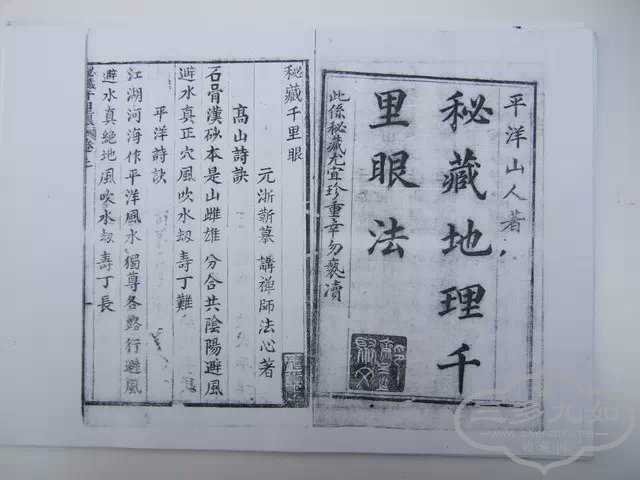 平洋山人著
秘藏地理千
里眼法
此係秘藏尤宜珍重幸勿褻瀆
秘藏千里眼
元浙蘄摹 講禪師法心著
高山詩訣
石骨漢砂本是山雌雄 分合共陰陽避風
避水真正穴風吹水刼 壽丁難
平洋詩訣
江湖河海作平洋風水 獨尊各路行避風
避水真絕地風吹水刼 壽丁長
三多九如
收藏网